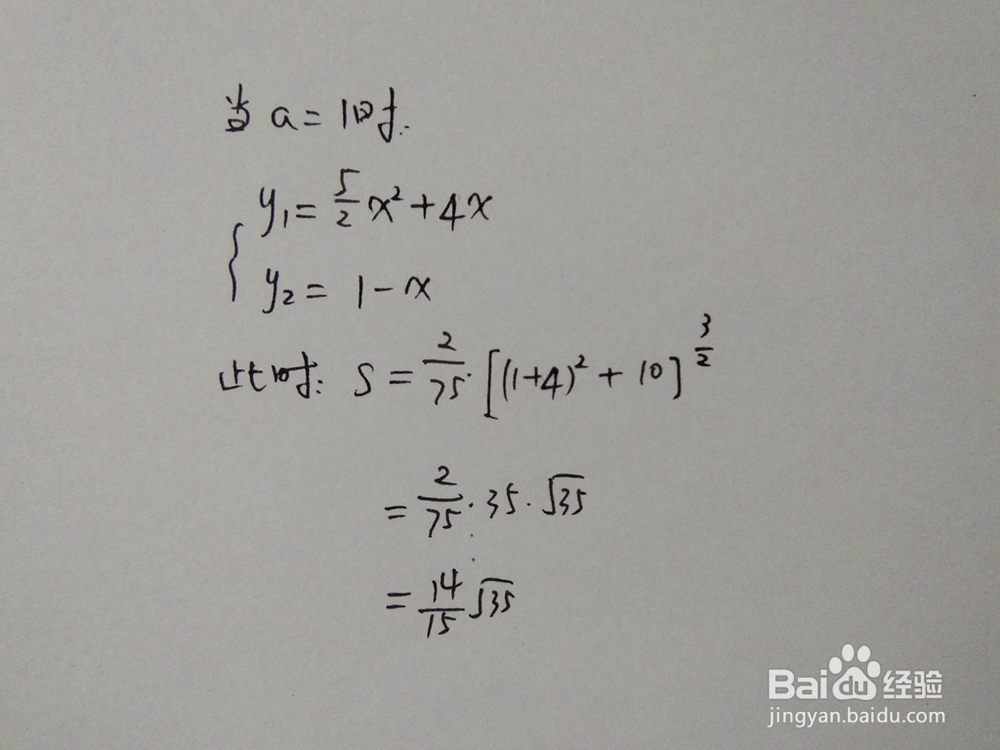 当 a = 1时.
y₁ = 5/2 x² + 4x
y₂ = 1 - x
此时: S = 2/75 · [(1+4)² + 10]^(3/2)
= 2/75 · 35 · √35
= 14/15 √35
Baidu 经验
jingyan.baidu.com